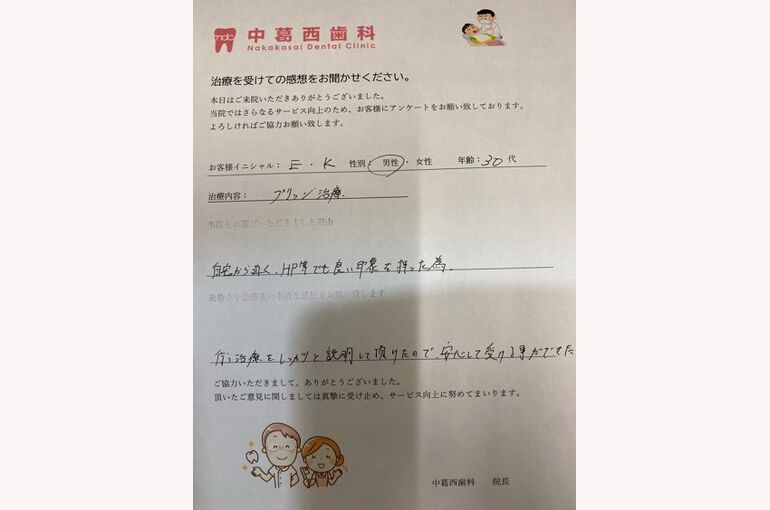 mdc
中葛西歯科
Nakakasai Dental Clinic
治療を受けての感想をお聞かせください。
本日はご来院いただきありがとうございました。
当院ではさらなるサービス向上のため、お客様にアンケートをお願い致しております。
よろしければご協力お願い致します。
お客様イニシャル： E・K 性別： 男性・女性 年齢：30代
治療内容： ブリッジ治療
当院をお選びいただきました理由
自宅から近く、HP等でも良い印象を持った為。
治療中や治療後の率直な感想をお願い致します
行う治療をしっかりと説明して頂けたので、安心して受ける事ができた
ご協力いただきまして、ありがとうございました。
頂いたご意見に関しましては真摯に受け止め、サービス向上に努めてまいります。
中葛西歯科 院長